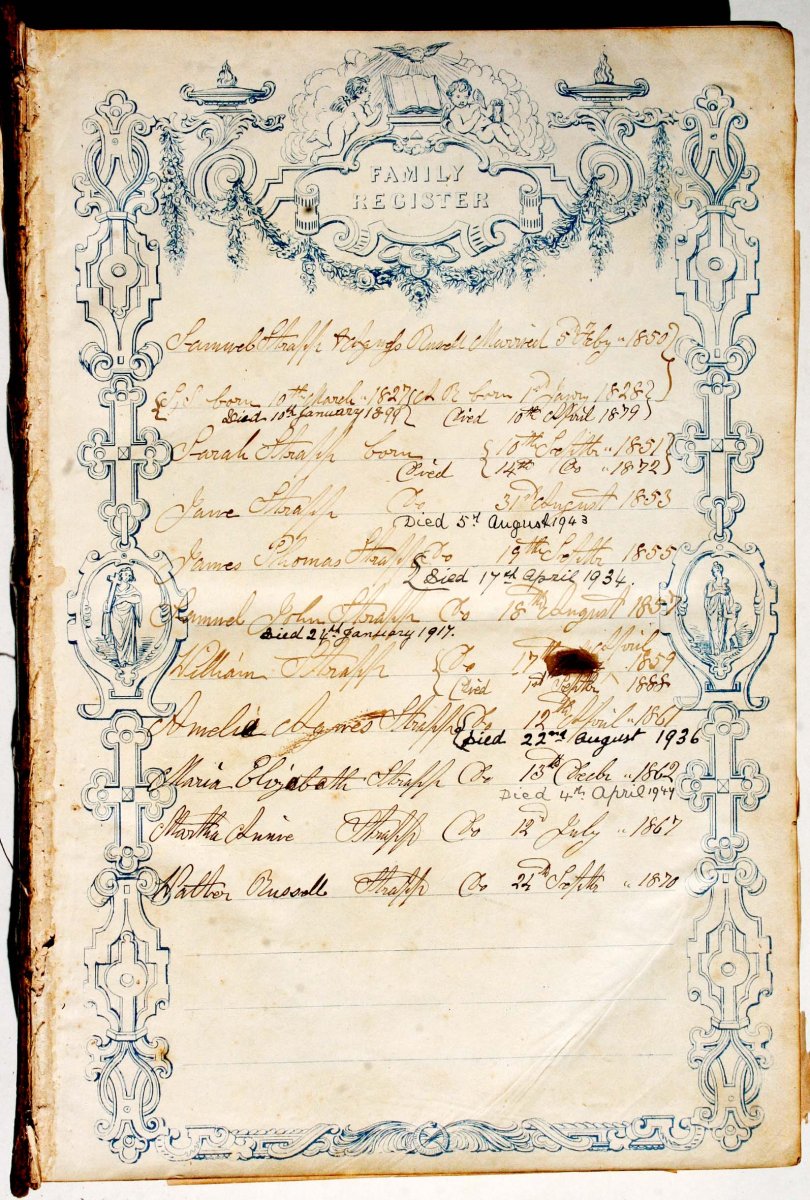 FAMILY
REGISTER
Samuel Strapp & Agnes Russell Married 5th Feby " 1850
S, S born 10th March " 1827 A R born 1st Janry 1828
Died 10th January 1899 Died 10th April 1879
Sarah Strapp born 10th Septbr " 1851
Died 14th Do " 1872
Jane Strapp Do 31st August 1853
Died 5th August 1943
James Thomas Strapp Do 19th Septbr 1855
Died 17th April 1934.
Samuel John Strapp Do 18th August 1857
Died 24th January 1917.
April
William Strapp Do 17th 1859
Died 1st Septbr 1888
Amelia Agnes Strapp Do 12th April " 1861
Died 22nd August 1936
Maria Elizabeth Strapp Do 13th Decbr " 1862
Died 4th April 1947
Martha Annie Strapp Do 12th July " 1867
Walter Russell Strapp Do 24th Septbr " 1870